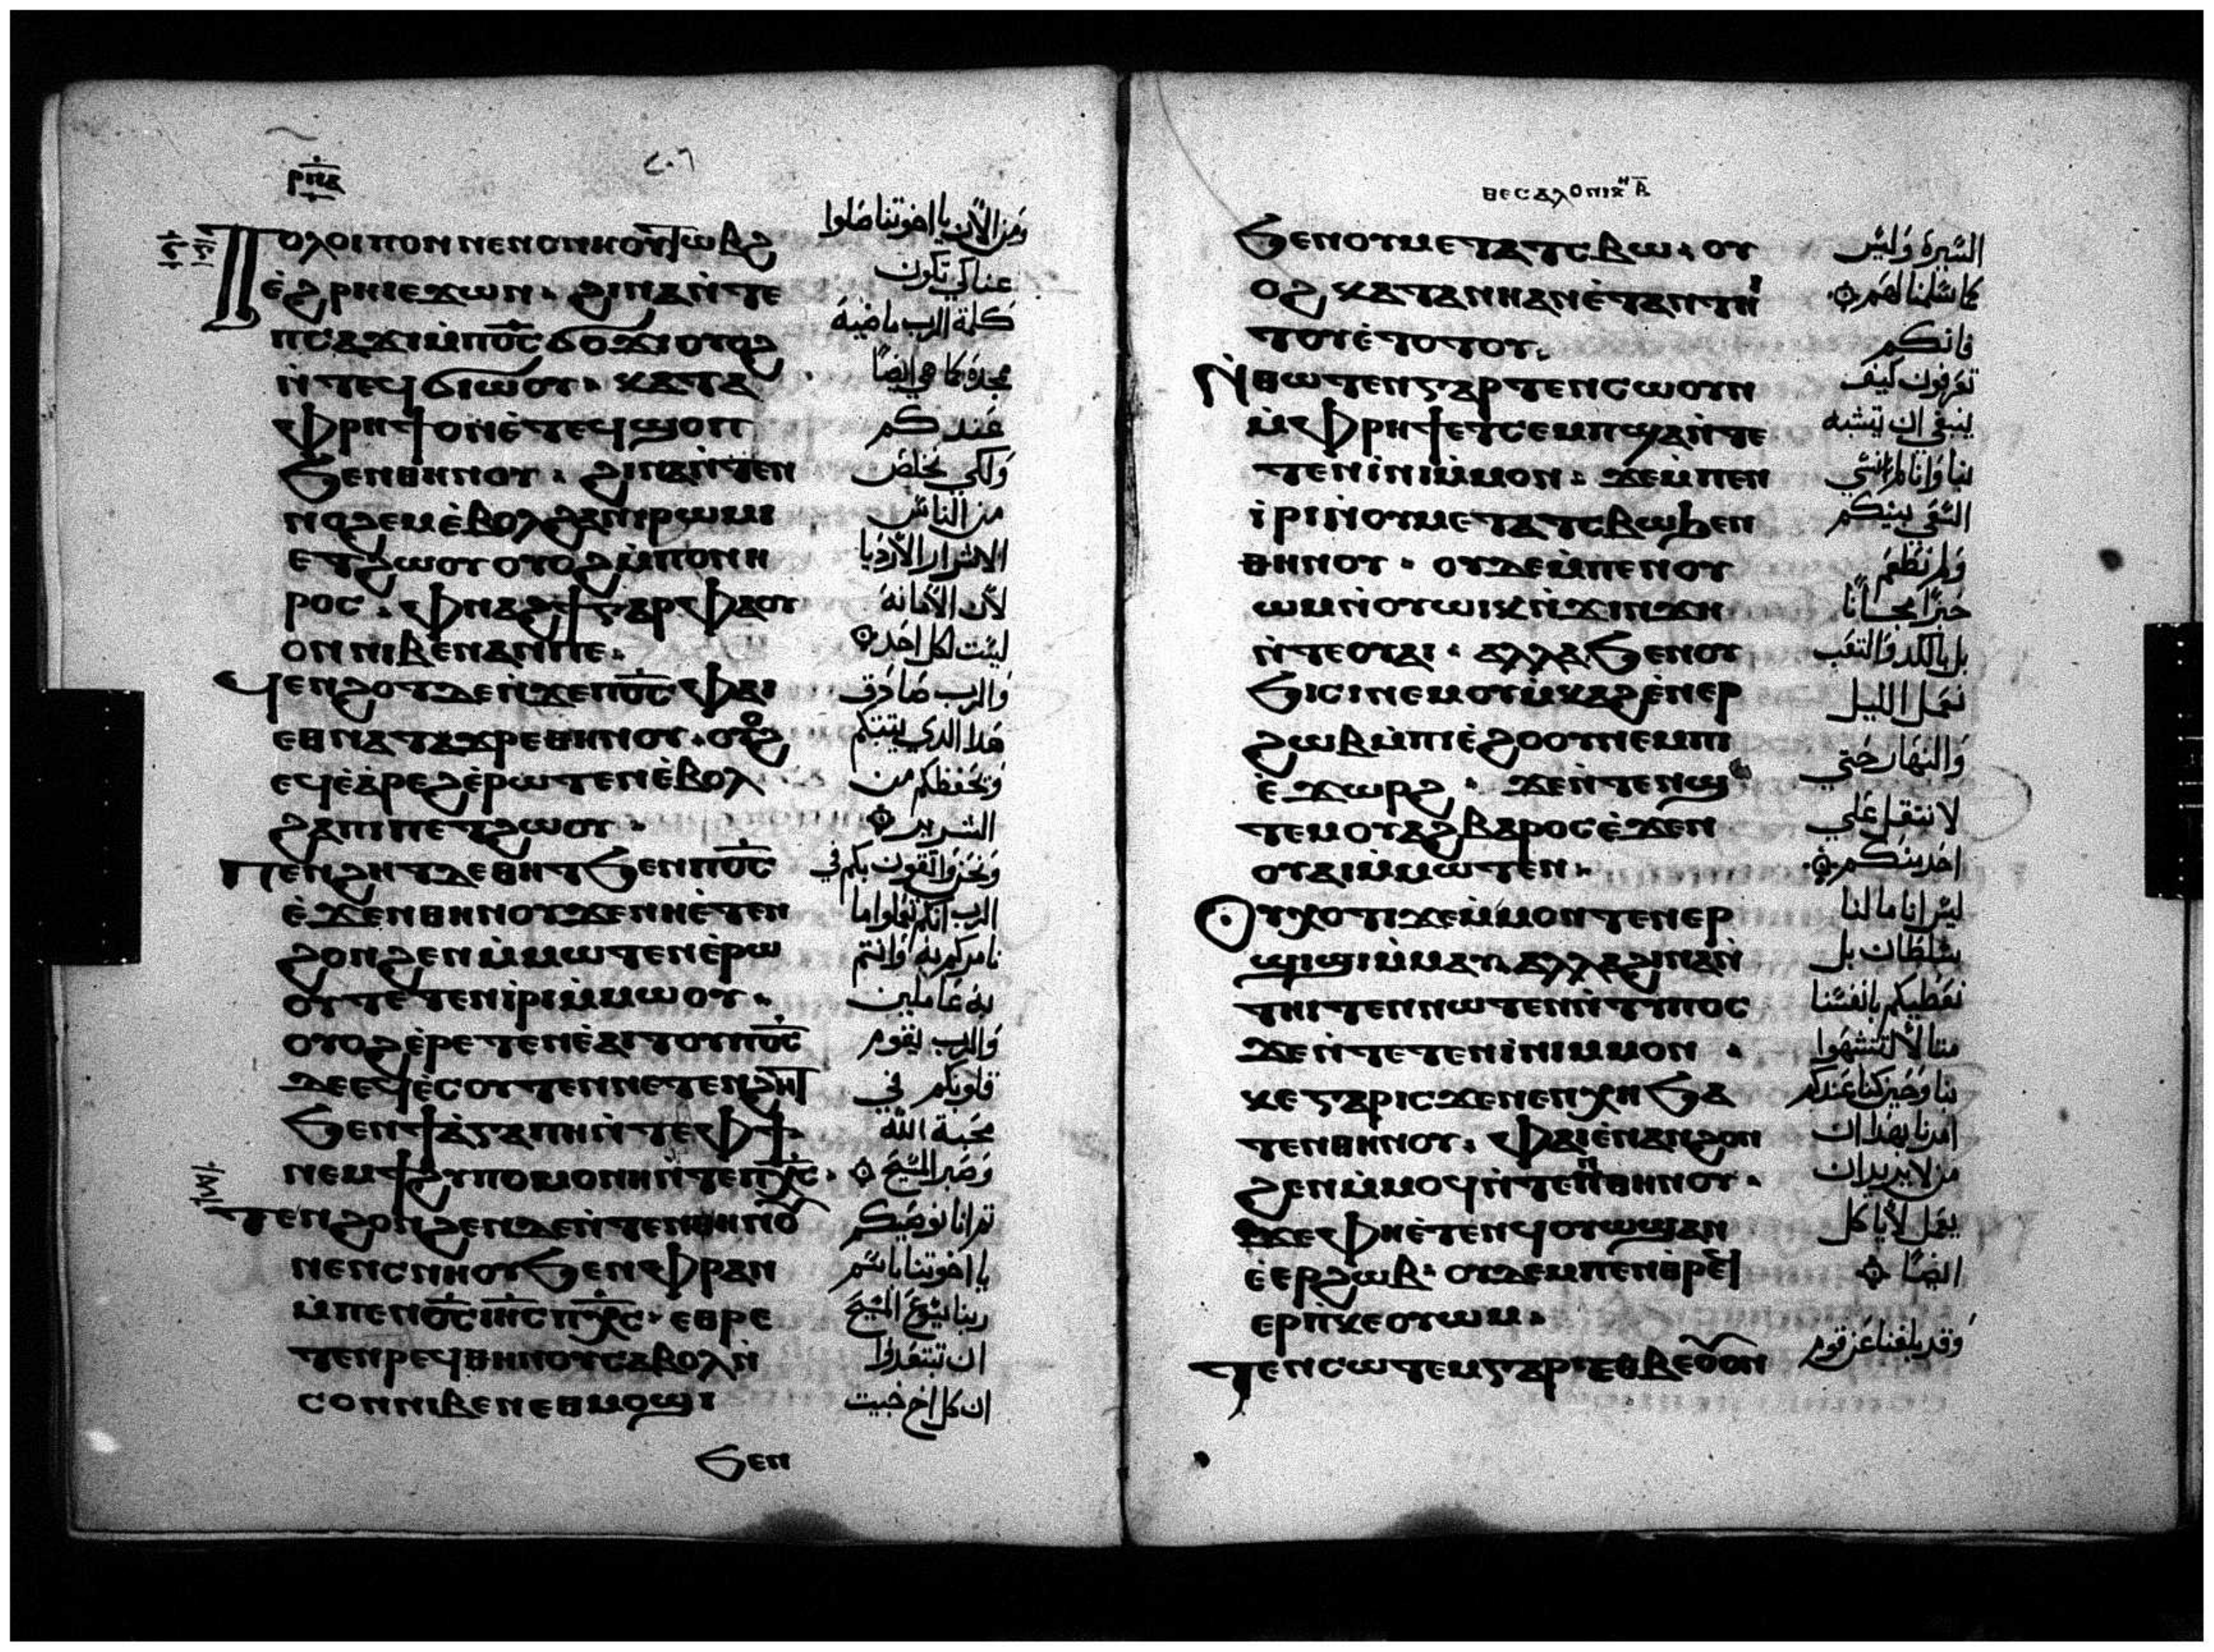 ⲣⲡⲁ
ⲡⲟⲗⲟⲓⲡⲟⲛ ⲛⲉⲛⲥⲛⲏⲟⲩ ⲧⲱⲃϩ
ⲉ̇ϩⲣⲏⲓⲉϫⲱⲛ · ϩⲓⲛⲁⲛ̇ⲧⲉ
ⲡⲥⲁϫⲓⲙ̇ⲡⲟ̅ⲥ̅ ϭⲟϫⲓ ⲟⲩⲟϩ
ⲛ̇ⲧⲉϥϭⲓⲱⲟⲩ · ⲕⲁⲧⲁ
ⲫⲣⲏϯ ⲟⲛⲉ̇ⲧⲉϥϣⲟⲡ
ϧⲉⲛⲑⲏⲛⲟⲩ · ϩⲓⲛⲁⲛ̇ⲧⲉⲛ
ⲛⲟϩⲉⲙⲉ̇ⲃⲟⲗϩⲁⲛⲓⲣⲱⲙⲓ
ⲉⲧϩⲱⲟⲩ ⲟⲩⲟϩⲙ̇ⲡⲟⲛⲏ
ⲣⲟⲥ · ⲫⲛⲁϩϯⲅⲁⲣ ⲫⲁⲟⲩ
ⲟⲛⲛⲓⲃⲉⲛⲁⲛⲡⲉ ·
ϥⲉⲛϩⲟⲧ ⲇⲉⲛ̇ϫⲉⲡⲟ̅ⲥ̅ ⲫⲁⲓ
ⲉⲑⲛⲁⲧⲁϫⲣⲉⲑⲏⲛⲟⲩ · ⲟⲩⲟϩ
ⲉϥⲉ̇ⲁ̇ⲣⲉϩⲉ̇ⲣⲱⲧⲉⲛⲉ̇ⲃⲟⲗ
ϩⲁⲡⲓⲡⲉⲧϩⲱⲟⲩ ·
ⲡⲉⲛϩⲏⲧ ⲇⲉⲑⲏⲧ ϧⲉⲛⲡⲟ̅ⲥ̅
ⲉ̇ϫⲉⲛⲑⲏⲛⲟⲩ ϫⲉⲛⲏⲉ̇ⲧⲉⲛ
ϩⲟⲛϩⲉⲛⲙ̇ⲙⲱⲧⲉⲛⲉ̇ⲣⲱ
ⲟⲩ ⲧⲉⲧⲉⲛⲓ̇ⲣⲓⲙ̇ⲙⲱⲟⲩ ·
ⲟⲩⲟϩⲉ̇ⲣⲉⲧⲉⲛⲉ̇ⲁⲓⲧⲟⲩ ⲡⲟ̅ⲥ̅
ⲇⲉⲉϥⲉ̇ⲥⲟⲩⲧⲉⲛⲛⲉⲧⲉⲛϩⲏⲧ
ϧⲉⲛϯⲁ̇ⲅⲁⲡⲏⲛ̇ⲧⲉⲫϯ
ⲛⲉⲙϯϩⲩⲡⲟⲙⲟⲛⲏⲛ̇ⲧⲉⲡⲭ̅ⲥ̅ ·
ⲧⲉⲛϩⲟⲛϩⲉⲛⲇⲉⲛ̇ⲧⲉⲛⲑⲏⲛⲟⲩ
ⲛⲉⲛⲥⲛⲏⲟⲩ ϧⲉⲛⲫⲣⲁⲛ
ⲙ̇ⲡⲉⲛⲟ̅ⲥ̅ ⲓⲏ̅ⲥ̅ ⲡⲭ̅ⲥ̅ · ⲉⲑⲣⲉ
ⲧⲉⲛⲣⲉϥⲑⲏⲛⲟⲩ ⲥⲁⲃⲟⲗⲛ̇
ⲥⲟⲛⲛⲓⲃⲉⲛⲉⲑⲙⲟϣⲓ
ϧⲉⲛ
ومن الأن يا اخوتنا صلوا
عنا لكي تكون
كلمة الرب ماضية
ممجدة كما هي ايضًا
عندكم
ولكي نخلص
من الناس
الاشرار الأردياء
لأن الأمانة
ليست لكل احد
والرب صادق
هذا الدي يثبتكم
ويحفظكم من
الشرير
ونحن واثقون بكم في
الرب انكم تفعلوا ما
نامركم به وانتم
به عاملين
والرب يقوم
قلوبكم في
محبة الله
وصبر المسيح
ثم انا نوصيكم
يا اخوتنا باسم
ربنا يسوع المسيح
ان تبتعدوا
ان كل اخ خبيث
ⲑⲉⲥⲁⲗⲟⲛⲓⲕⲏ ⲃ̅
ϧⲉⲛⲟⲩⲙⲉⲧⲁⲧⲥⲃⲱ · ⲟⲩ
ⲟϩ ⲕⲁⲧⲁⲛⲏⲁⲛⲉ̇ⲧⲁⲛⲧⲏⲓ
ⲧⲟⲩⲉ̇ⲧⲟⲧⲟⲩ ·
ⲛ̇ⲑⲱⲧⲉⲛⲅⲁⲣ ⲧⲉⲛⲥⲱⲟⲩⲛ
ⲙ̇ⲫⲣⲏϯⲉⲧⲥⲉⲙⲡϣⲁⲛ̇ⲧⲉ
ⲧⲉⲛⲓ̇ⲛⲓⲙ̇ⲙⲟⲛ · ϫⲉⲙ̇ⲡⲉⲛ
ⲓ̇ⲣⲓⲛ̇ⲟⲩⲙⲉⲧⲁⲧⲥⲃⲱϧⲉⲛ
ⲑⲏⲛⲟⲩ · ⲟⲩⲇⲉⲙ̇ⲡⲉⲛⲟⲩ
ⲱⲙⲛ̇ⲟⲩⲱⲓⲕⲛ̇ϫⲓⲛϫⲏ
ⲛ̇ⲧⲉⲟⲩⲁⲓ · ⲁⲗⲗⲁ ϧⲉⲛⲟⲩ
ϧⲓⲥⲓⲛⲉⲙⲟⲩⲙ̇ⲕⲁϩⲉ̇ⲛⲉⲣ
ϩⲱⲃⲙ̇ⲡⲓⲉ̇ϩⲟⲟⲩⲛⲉⲙⲡⲓ
ⲉ̇ϫⲱⲣϩ · ϫⲉⲛ̇ⲧⲉⲛϣ
ⲧⲉⲙⲟⲩⲁϩⲃⲁⲣⲟⲥⲉ̇ϫⲉⲛ
ⲟⲩⲁⲓⲙ̇ⲙⲱⲧⲉⲛ ·
ⲟⲩⲭⲟⲧⲓϫⲉⲙ̇ⲙⲟⲛⲧⲉⲛⲉⲣ
ϣⲓϣⲓⲙ̇ⲙⲁⲩ ⲁⲗⲗⲁϩⲓⲛⲁⲛ̇
ⲧⲏⲓⲧⲉⲛⲛⲱⲧⲉⲛⲛ̇ⲧⲩⲡⲟⲥ
ϫⲉⲛ̇ⲧⲉⲧⲉⲛⲓ̇ⲛⲓⲙⲙⲟⲛ ·
ⲕⲉⲅⲁⲣⲓⲥϫⲉⲛⲉⲛⲭⲏ ϧⲁ
ⲧⲉⲛⲑⲏⲛⲟⲩ · ⲫⲁⲓⲉ̇ⲛⲁⲛϩⲟⲛ
ϩⲉⲛⲙ̇ⲙⲟϥⲛ̇ⲧⲉⲛⲑⲏⲛⲟⲩ ·
ϫⲉⲫⲏⲉ̇ⲧⲉⲛϥⲟⲩⲱϣⲁⲛ
ⲉ̇ⲉⲣϩⲱⲃ · ⲟⲩⲇⲉⲙⲡⲉⲛⲑⲣⲉϥ
ⲉⲣⲡ̇ⲕⲉⲟⲩⲱⲙ ·
ⲧⲉⲛⲥⲱⲧⲉⲙⲅⲁⲣⲉⲑⲃⲉⲟⲩⲟⲛ
السيرة وليس
كما سلمنا لهم
فانكم
تعرفون كيف
ينبغي ان يتشبه
بنا وانا لم انشي
الشقي بينكم
ولم نطعم
خبزًا مجانًا
بل بالكد والتعب
نعمل الليل
والنهار حتي
لا نثقل علي
احد منكم
ليس انا ما لنا
سلطان بل
نعطيكم بانفسنا
مثالًا لتتشبهوا
بنا وحين كنا عندكم
امرنا بهذا ان
من لا يريد ان
يعمل لا ياكل
ايضًا
وقد بلغنا عن قوم